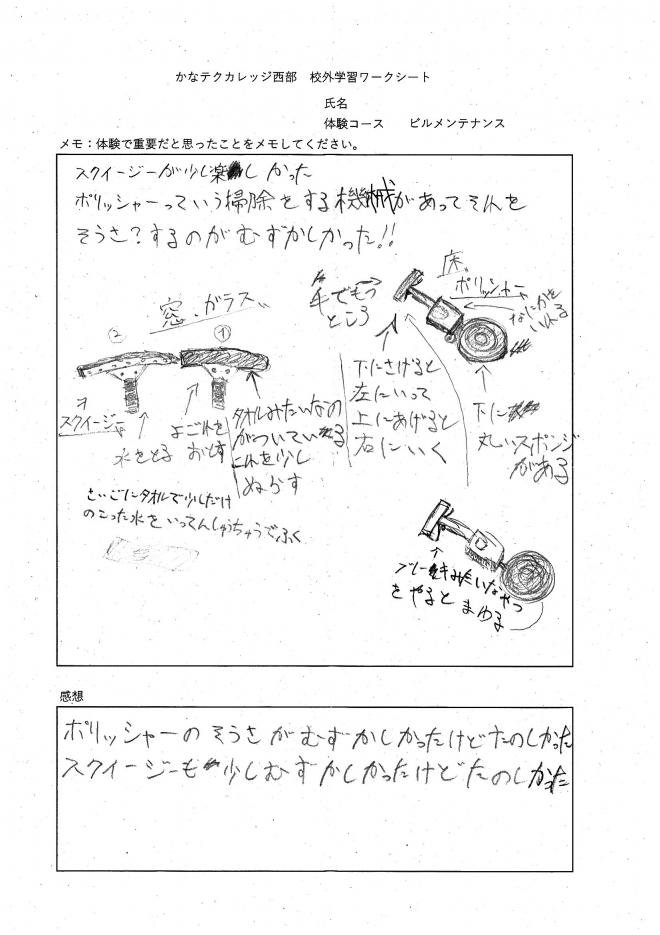 かなテクカレッジ西部　校外学習ワークシート
氏名
体験コース　ビルメンテナンス
メモ：体験で重要だと思ったことをメモしてください。
スクイージーが少し楽しかった
ポリッシャーっていう掃除をする機械があってそんを
そうさ?するのがむずかしかった!!
床
ポリッシャー
なにかを
いれる
手でもつ
ところ
窓、ガラス
②
①
スクイージー
水をとる
よごれを
おとす
タオルみたいなの
がついている
これを少し
ぬらす
下にさげると
左にいって
上にあげると
右にいく
下に
丸いスポンジ
がある
さいごにタオルで少しだけ
のこった水をいってんしゅうちゅうでふく
ブレーキみたいなやつ
をやると まわる
感想
ポリッシャーのそうさがむずかしかったけどたのしかった
スクイージーも少しむずかしかったけどたのしかった